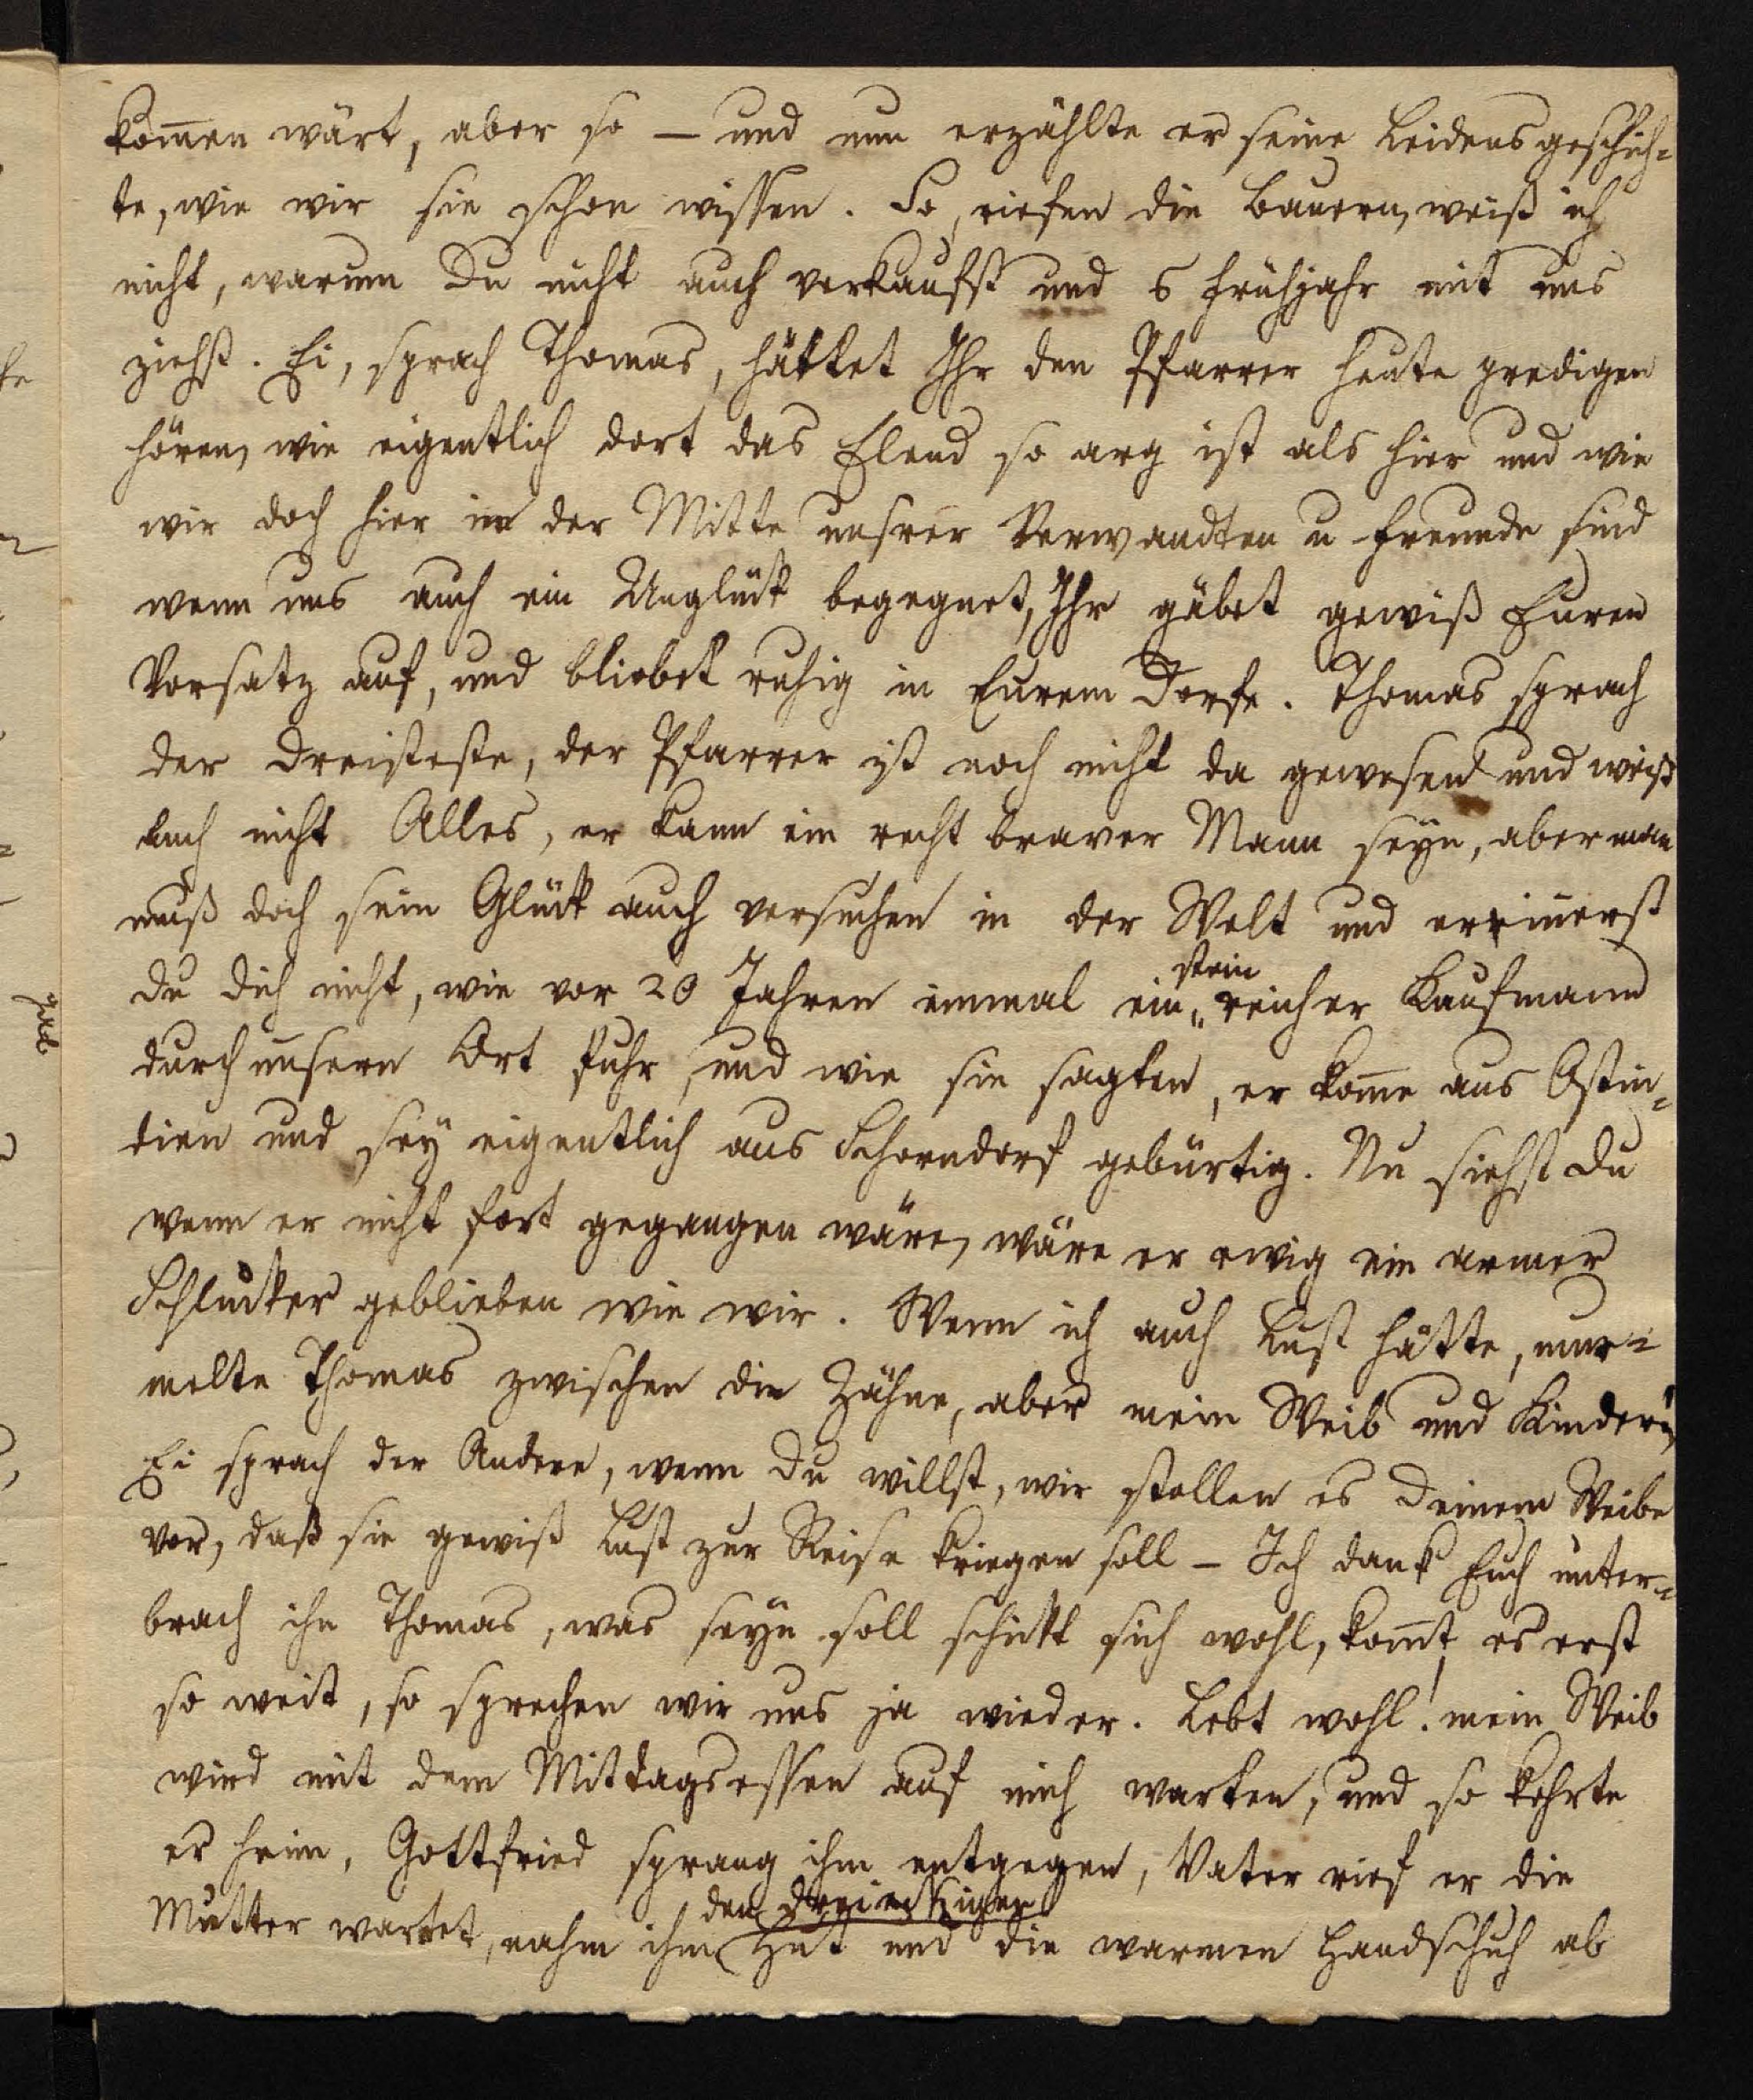 kom̄en wärt, aber so — und nun erzählte er seine Leidensgeschich=
te, wie wir sie schon wissen. So, riefen die Bauern, weiß ich
nicht, warum Du nicht auch verkaufst und s Frühjahr mit uns
ziehst. Ei, sprach Thomas, hättet Ihr den Pfarrer heute predigen
hören, wie eigentlich dort das Elend so arg ist als hier und wie
wir doch hier in der Mitte unsrer Verwandten u Freunde sind
wenn uns auch ein Unglück begegnet, Ihr gäbet gewiß Euren
Vorsatz auf, und bliebet ruhig in Eurem Dorfe. Thomas sprach
der Dreisteste, der Pfarrer ist noch nicht da gewesen und weiß
auch nicht Alles, er kann ein recht braver Mann seyn, aber man
muß doch sein Glück auch versuchen in der Welt und erinnerst
du dich nicht, wie vor 20 Jahren einmal ein steinreicher Kaufmann
durch unsern Ort fuhr, und wie sie sagten, er kom̄e aus Ostin=
dien und sey eigentlich aus Schorndorf gebürtig. Nu siehst du
wenn er nicht fort gegangen wäre, wäre er ewig ein armer
Schlucker geblieben wie wir. Wenn ich auch Lust hätte, mur=
melte Thomas zwischen die Zähne, aber mein Weib und Kinder,
Ei sprach der Andere, wenn Du willst, wir stellen es Deinem Weibe
vor, daß sie gewiß Lust zur Reise kriegen soll — Ich dank Euch unter=
brach ihn Thomas, was seyn soll schickt sich wohl, kom̄t es erst
so weit, so sprechen wir uns ja wieder. Lebt wohl! mein Weib
wird mit dem Mittagsessen auf mich warten, und so kehrte
er heim, Gottfried sprang ihm entgegen, Vater rief er die
Mutter wartet, nahm ihm den dreieckigen Hut und die warmen Handschuh ab